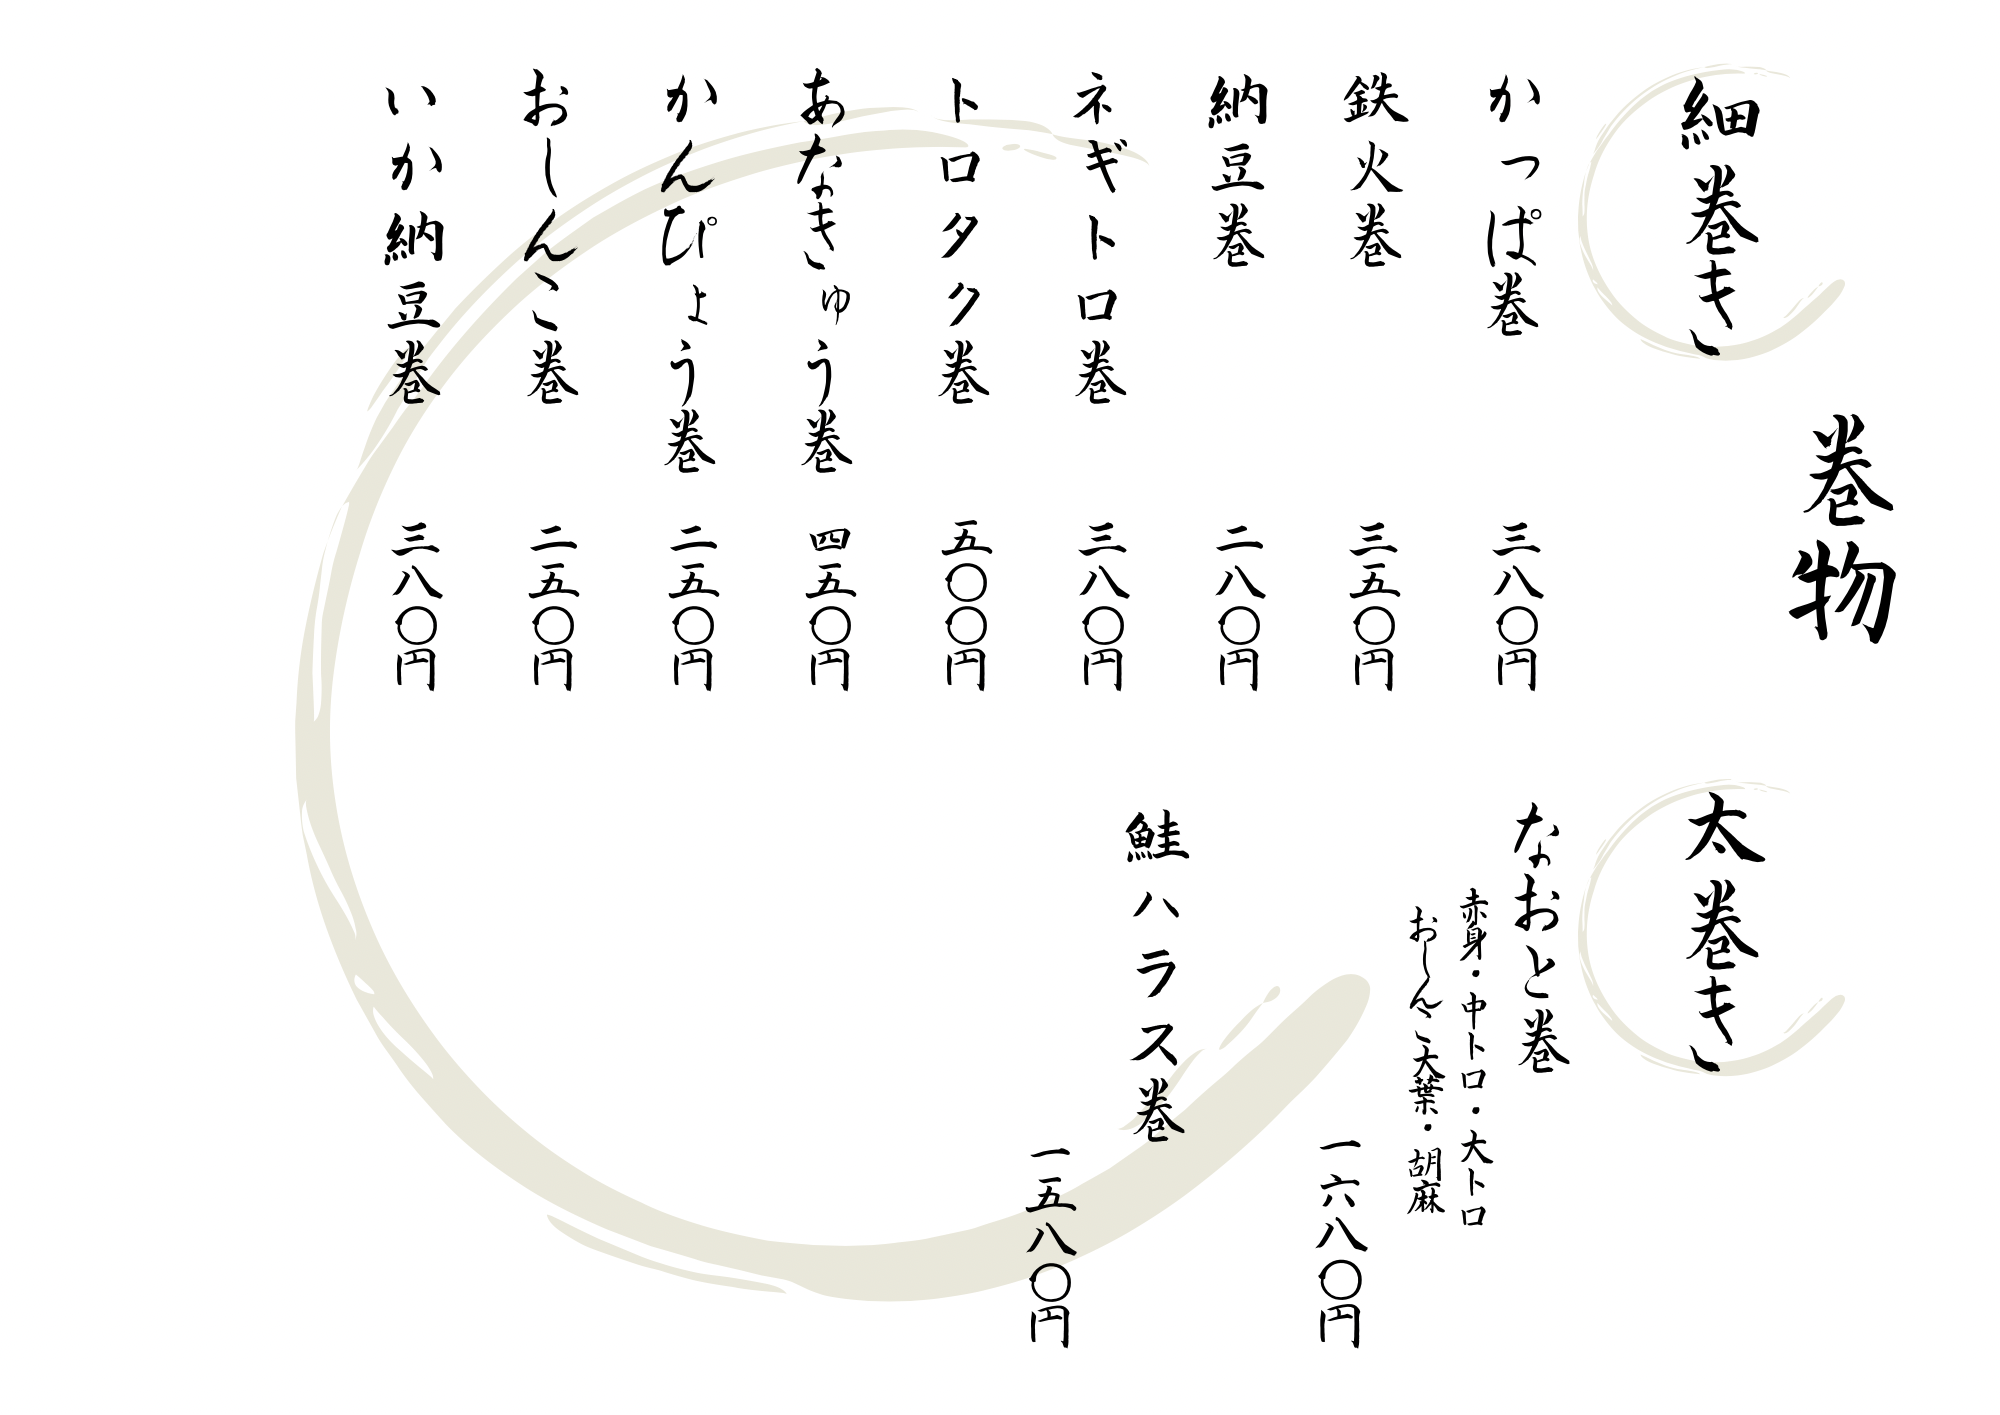 巻物
細巻き
かっぱ巻
三八〇円
鉄火巻
三五〇円
納豆巻
二八〇円
ネギトロ巻
三八〇円
トロタク巻
五〇〇円
あなきゅう巻
四五〇円
かんぴょう巻
二五〇円
おしんこ巻
二五〇円
いか納豆巻
三八〇円
太巻き
なおと巻
赤身・中トロ・大トロ
おしんこ大葉・胡麻
一六八〇円
鮭ハラス巻
一五八〇円